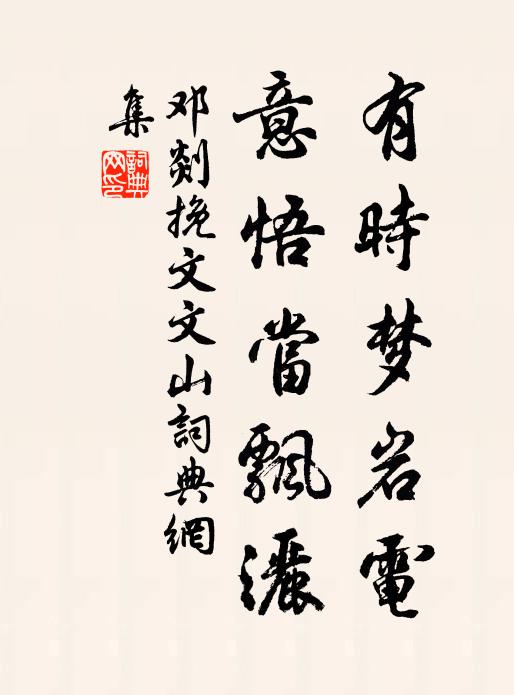 有時梦岩電
意悟當飄灑
邓剡挽文文山詞典網
集
詞典網印